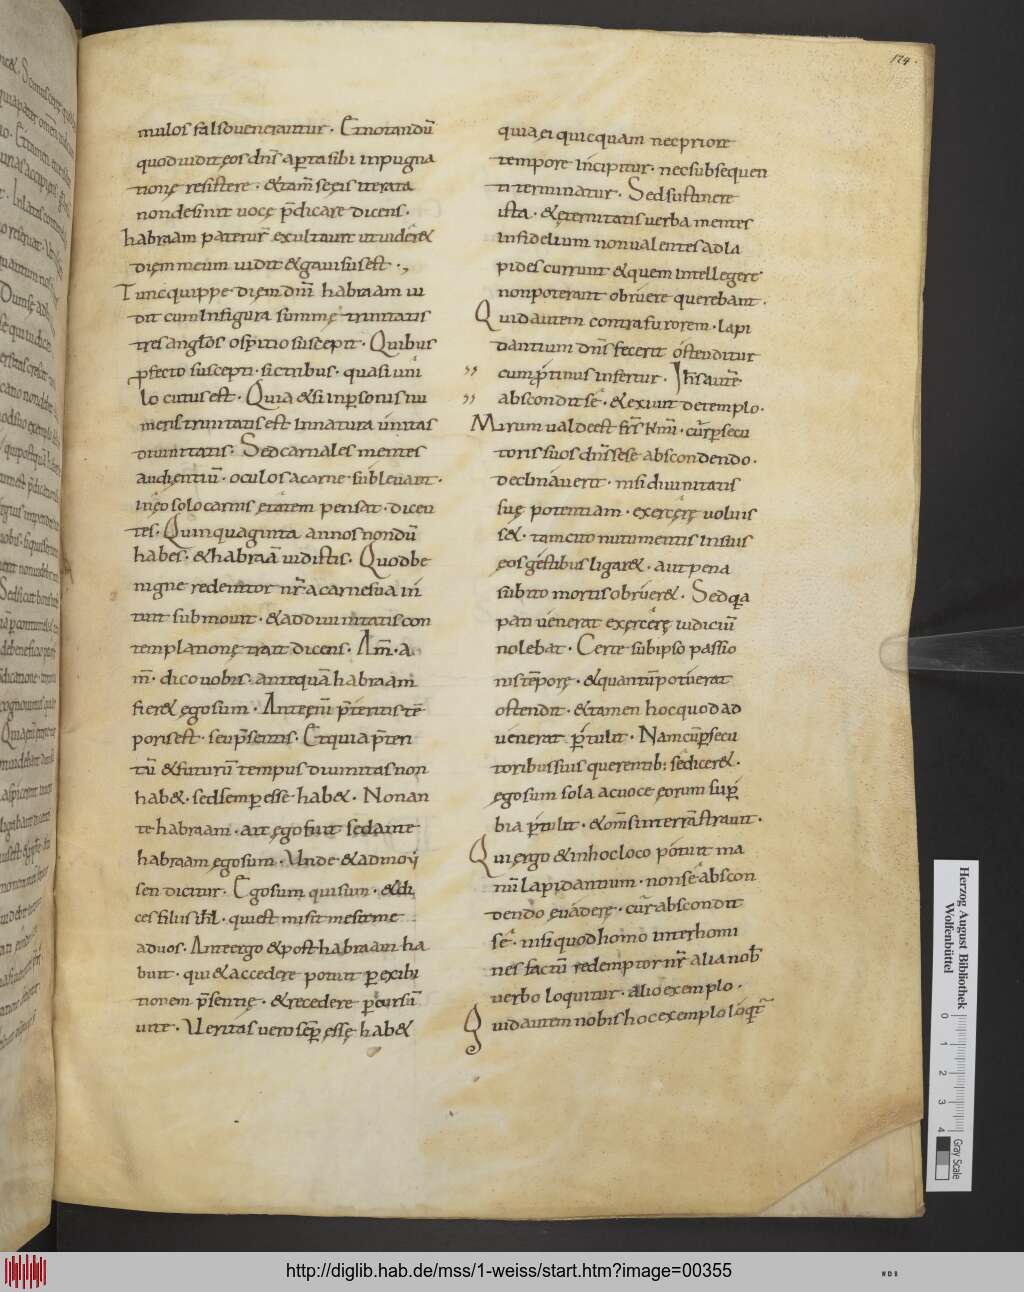 174.
mulos falso venerantur · Et notandū
quod uidit eos dn̄s aperta sibi inpugna
tionę resistere · & tam̄ se eis iterata
non desinit uocę p̄dicare dicens ·
habraam pater ur̄ exultauit ut uider&
diem meum uidit & gauisus est ·,
Tunc quippe diem dn̄i habraam ui
dit cum In figura summę trinitatis
tres angłos ospitio suscepit · Quibus
ꝓfecto susceptis · sic tribus · quasi uni
locutus est · Quia & si in personis nu
merus trinitatis est In natura unitas
diuinitatis · Sed carnales mentes
audientiū · oculos a carne subleuant ·
in eo solo carnis etatem pensat · dicen
tes · Quinquaginta annos nondū
habes · & habraā uidistis · Quod be
nigne redemtor nr̄ a carne sua in
tuit submouit · & ad diuinitatis con
templationę trait dicens · Am̄ · a
m̄ · dico uobis · antequā habraam
fier& ego sum · Ante enī p̄teritis tē
poris est · seu p̄sentis · Et quia p̄teri
tū & futurū tempus diuinitas non
hab& · sed semp esse hab& · Non an
te habraam · ait ego fuit sed ante
habraam ego sum · Unde & ad moy
sen dicitur · Ego sum qui sum · & di
ces filiis ihł · qui est misit me sit me
ad uos · Ante ergo & post habraam ha
buit · qui & accedere potuit p exibi
tionem p̄sentię · & recedere p cursū
uite · Ueritas uero semp essę hab&
quia ei quicquam nec priore
tempore incipitur · nec subsequen
ti terminatur · Sed sustinere
ista · & eternitatis uerba mentes
infidelium non ualentes ad la
pides currunt & quem intellegere
non poterant obruere querebant ·
Quid autem contra furorem · lapi
dantium dn̄s fecerit ostenditur
cum p̄tinus infertur · Ihs̄ aute
abscondit se · & exiuit de templo ·
Mirum ualde est frs̄ kmi · cur persecu
toris suos dn̄s se se abscondendo ·
declinauerit · nisi diuinitatis
suę potentiam · exercere uoluis
s& · tam cito nutu mentis In suis
eos gestibus ligar& · aut pena
subito mortis obruer& · Sed qa
pati uenerat exercere iudiciū
nolebat · Certe sub ipso passio
nis tēpore · & quantū poterat
ostendit · & tamen hoc quod ad
uenerat ptulit · Nam cū persecu
toribus suis querentib: se dicer& ·
ego sum sola ac uoce eorum sup
bia ptulit · & om̄s in terrā strauit ·
Qui ergo & in hoc loco potuit ma
nū lapidantium · non se abscon
dendo euadere · cur abscondit
se · nisi quod homo inter homi
nes factū redemptor nr̄ alia nob̄
uerbo loquitur · alio exemplo ·
Quid autem nobis hoc exemplo loqt
Herzog August Bibliothek
Wolfenbüttel
0
1
2
3
4
Gray Scale
http://diglib.hab.de/mss/1-weiss/start.htm?image=00355